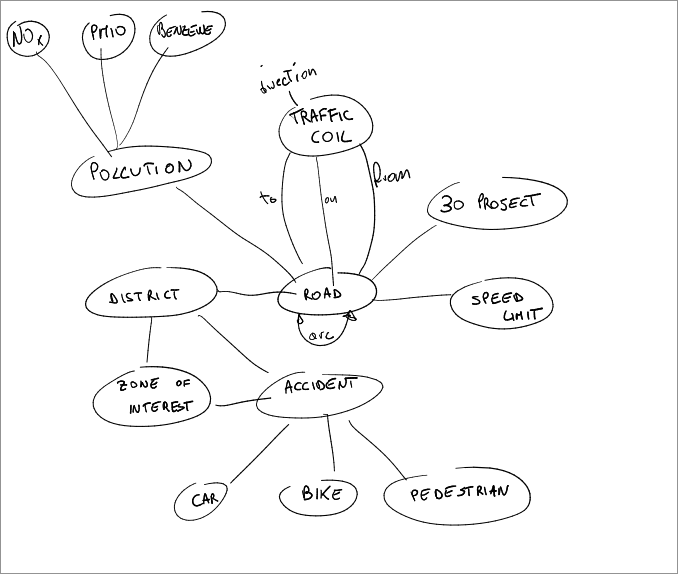 NOx
PM10
BENZENE
direction
TRAFFIC
COIL
POLLUTION
to
on
from
30 PROJECT
DISTRICT
ROAD
SPEED
LIMIT
arc
ZONE OF
INTEREST
ACCIDENT
CAR
BIKE
PEDESTRIAN